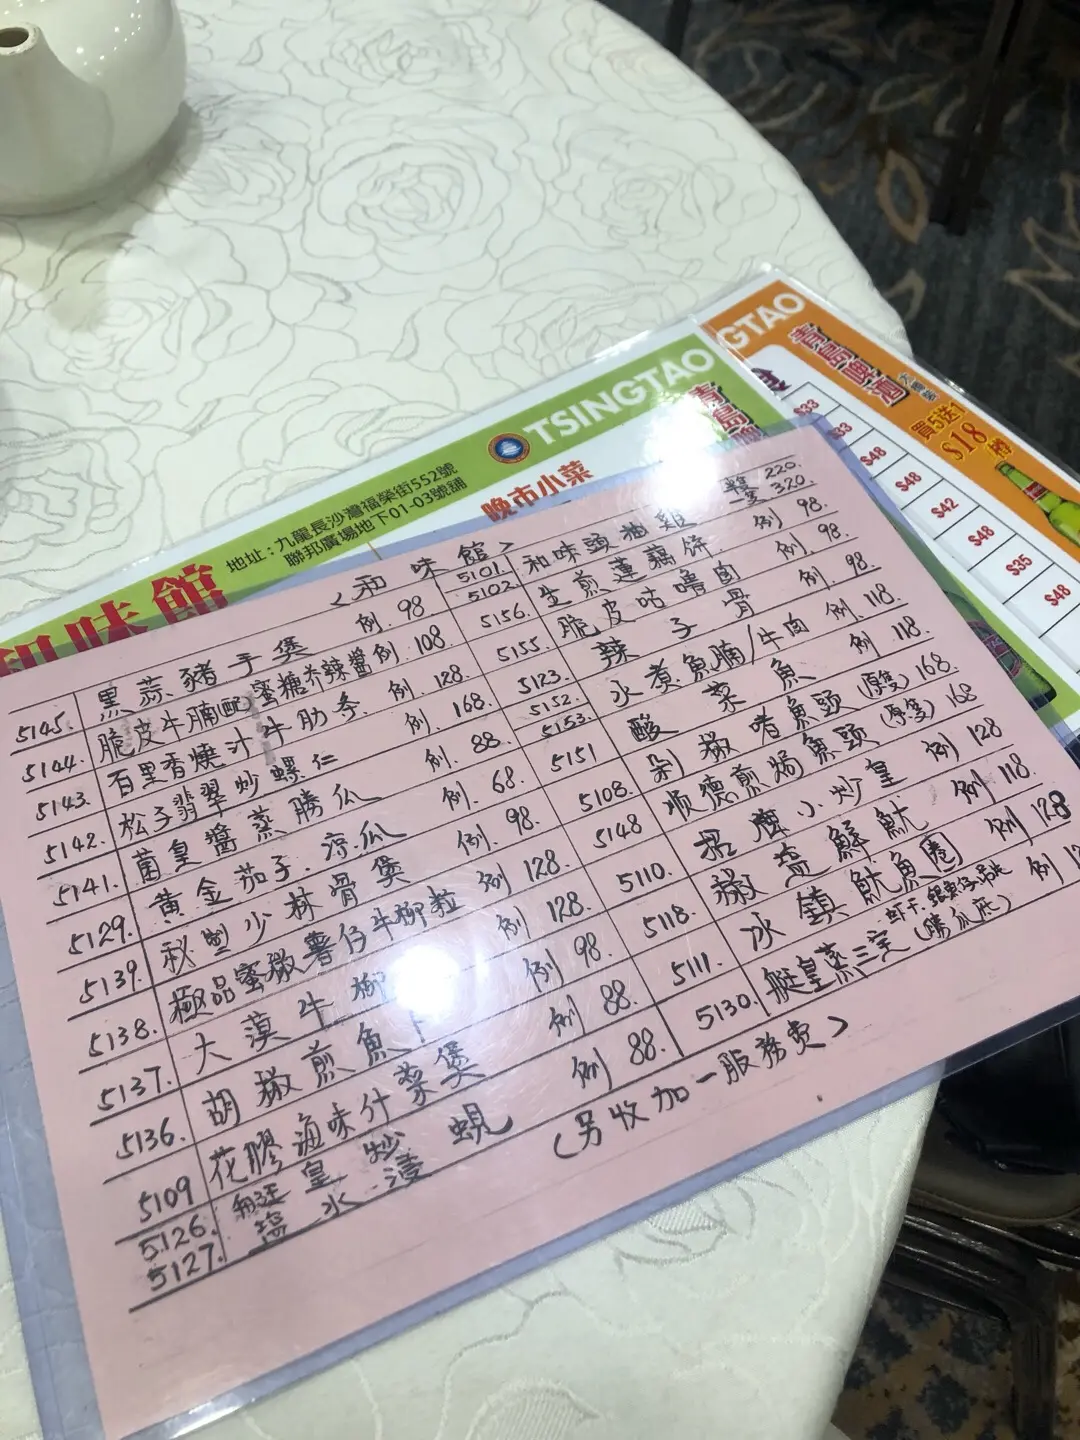 TSINGTAO
青島啤酒
大樽裝
買5送1
$18
樽
$33
$33
$48
$48
$42
$48
$35
$48
TSINGTAO
地址：九龍長沙灣福榮街552號
聯邦廣場地下01-03號舖
晚市小菜
和味館
<和味館>
5145. 黑蒜豬手煲 例. 98
5144. 脆皮牛腩(配蜜糖芥辣醬 例. 108
5143. 百里香燒汁牛肋条 例. 128
5142. 松子翡翠炒螺仁 例. 168
5141. 菌皇醬蒸勝瓜 例. 88
5129. 黄金茄子.涼瓜 例. 68
5139. 秋型少林骨煲 例. 98
5138. 極品蜜椒薯仔牛柳粒 例 128.
5137. 大漠牛柳 例 128.
5136. 胡椒煎魚 例 98.
5109 花膠滷味什菜煲 例 88.
5126. 皇炒
5127. 水浸
蜆 例 88.
5101 5102 和味頭抽雞 半隻 220. 一隻 320.
5156. 生煎蓮藕餅 例 98.
5155. 脆皮咕嚕肉 例. 98
5123. 辣子骨 例. 98.
5152. 5153. 水煮魚腩/牛肉 例. 118.
5151 酸菜魚 例. 118.
5108. 剁椒啫魚頭 (原隻) 168.
5148 顺德煎焗魚頭 (原隻) 168
5110. 招牌小炒皇 例 128
5118. 椒塩鮮魷 例 118.
5111. 冰鎮魷魚圈 例 128
5130. 艇皇蒸三宝 (勝瓜底) 例
(另收加一服務費)